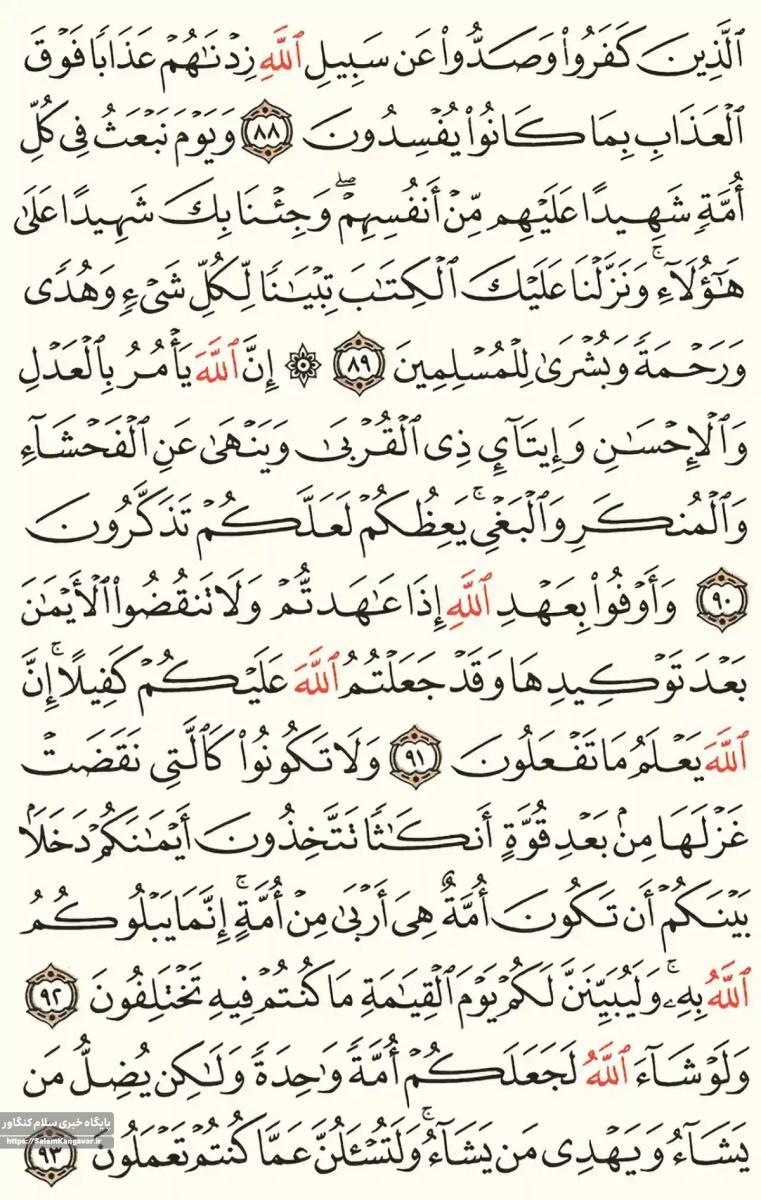 ٱلَّذِينَ كَفَرُوا۟ وَصَدُّوا۟ عَن سَبِيلِ ٱللَّهِ زِدْنَـٰهُمْ عَذَابًا فَوْقَ
ٱلْعَذَابِ بِمَا كَانُوا۟ يُفْسِدُونَ ٨٨ وَيَوْمَ نَبْعَثُ فِى كُلِّ
أُمَّةٍ شَهِيدًا عَلَيْهِم مِّنْ أَنفُسِهِمْ ۖ وَجِئْنَا بِكَ شَهِيدًا عَلَىٰ
هَـٰٓؤُلَآءِ ۚ وَنَزَّلْنَا عَلَيْكَ ٱلْكِتَـٰبَ تِبْيَـٰنًا لِّكُلِّ شَىْءٍ وَهُدًى
وَرَحْمَةً وَبُشْرَىٰ لِلْمُسْلِمِينَ ٨٩ ۞ إِنَّ ٱللَّهَ يَأْمُرُ بِٱلْعَدْلِ
وَٱلْإِحْسَـٰنِ وَإِيتَآئِ ذِى ٱلْقُرْبَىٰ وَيَنْهَىٰ عَنِ ٱلْفَحْشَآءِ
وَٱلْمُنكَرِ وَٱلْبَغْىِ ۚ يَعِظُكُمْ لَعَلَّكُمْ تَذَكَّرُونَ
٩٠ وَأَوْفُوا۟ بِعَهْدِ ٱللَّهِ إِذَا عَـٰهَدتُّمْ وَلَا تَنقُضُوا۟ ٱلْأَيْمَـٰنَ
بَعْدَ تَوْكِيدِهَا وَقَدْ جَعَلْتُمُ ٱللَّهَ عَلَيْكُمْ كَفِيلًا ۚ إِنَّ
ٱللَّهَ يَعْلَمُ مَا تَفْعَلُونَ ٩١ وَلَا تَكُونُوا۟ كَٱلَّتِى نَقَضَتْ
غَزْلَهَا مِنۢ بَعْدِ قُوَّةٍ أَنكَـٰثًا تَتَّخِذُونَ أَيْمَـٰنَكُمْ دَخَلًۢا
بَيْنَكُمْ أَن تَكُونَ أُمَّةٌ هِىَ أَرْبَىٰ مِنْ أُمَّةٍ ۚ إِنَّمَا يَبْلُوكُمُ
ٱللَّهُ بِهِۦ ۚ وَلَيُبَيِّنَنَّ لَكُمْ يَوْمَ ٱلْقِيَـٰمَةِ مَا كُنتُمْ فِيهِ تَخْتَلِفُونَ ٩٢
وَلَوْ شَآءَ ٱللَّهُ لَجَعَلَكُمْ أُمَّةً وَٰحِدَةً وَلَـٰكِن يُضِلُّ مَن
يَشَآءُ وَيَهْدِى مَن يَشَآءُ ۚ وَلَتُسْـَٔلُنَّ عَمَّا كُنتُمْ تَعْمَلُونَ ٩٣
پایگاه خبری سلام کنگاور
https://SalamKangavar.ir